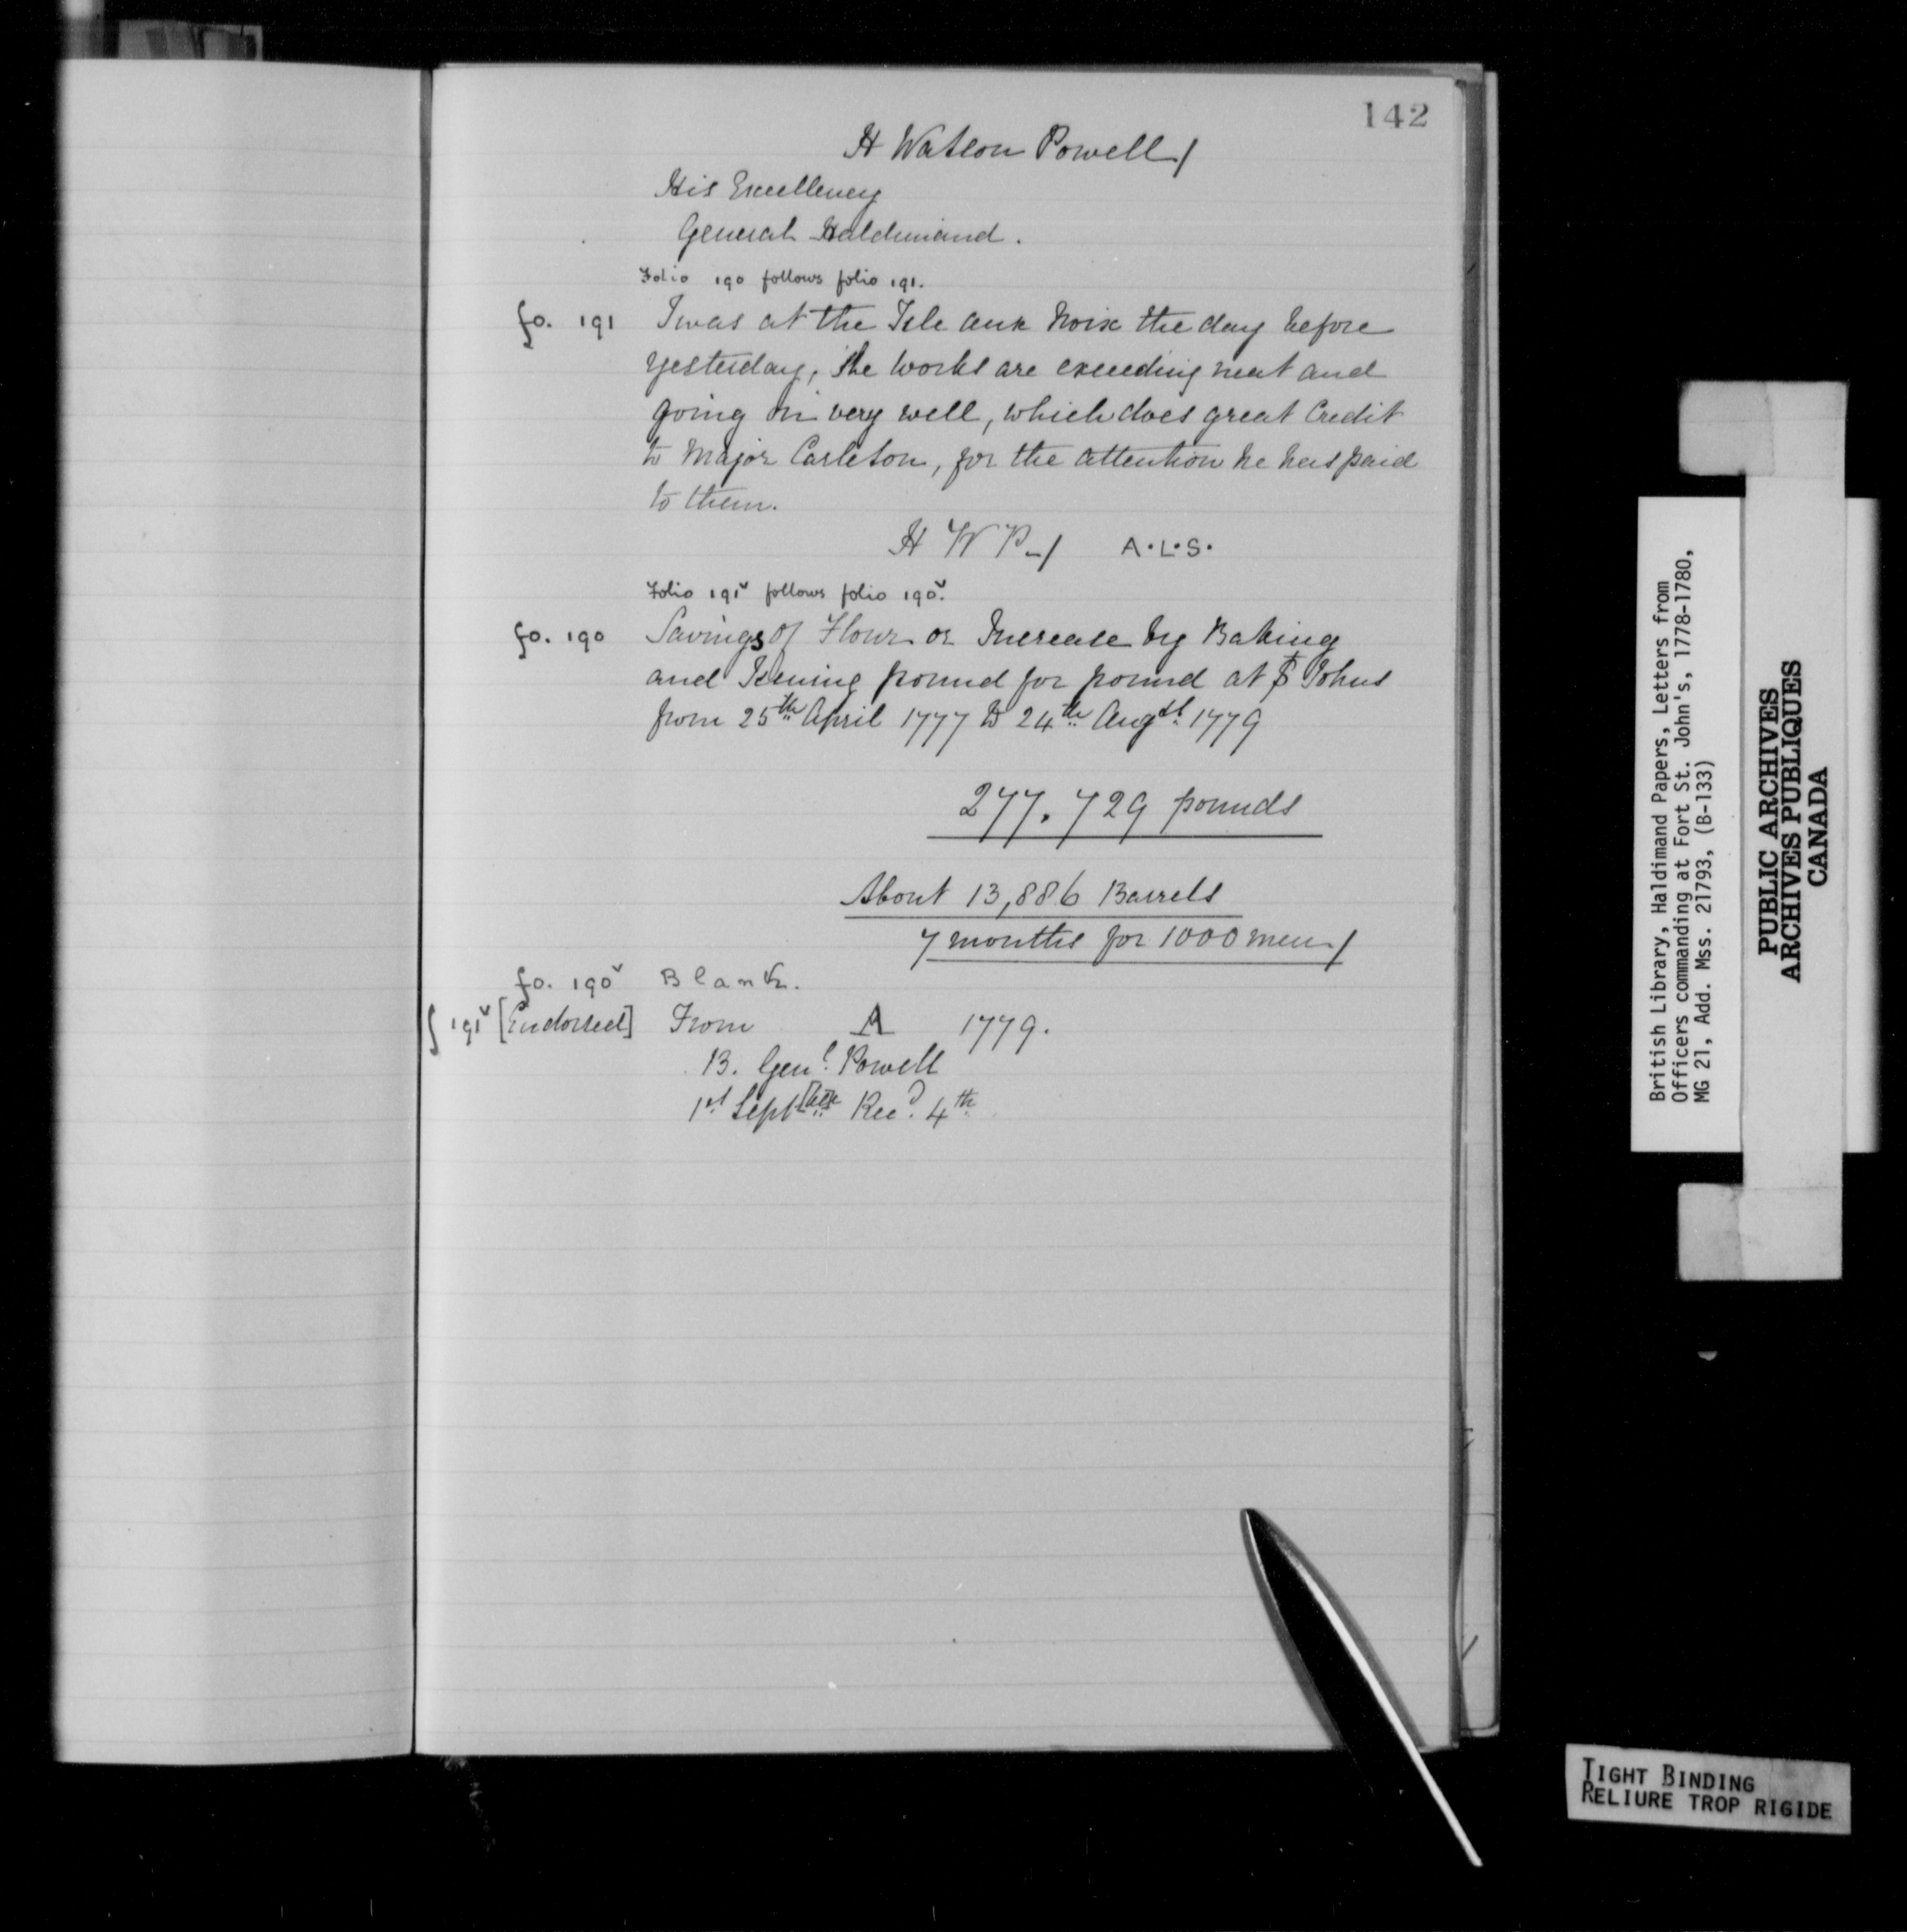 142
H Watson Powell/
His Excellency
General Haldimand.
Folio 190 follows folio 191.
fo. 191 I was at the Isle aux Noix the day before
yesterday, the Works are exceeding neat and
going on very well, which does great Credit
to Major Carleton, for the attention he has paid
to them.
H W P-/ A.L.S.
Folio 191v follows folio 190v.
fo. 190 Savings of Flour or Increase by Baking
and Issuing pound for pound at St Johns
from 25th April 1777 to 24th Augst. 1779
277.729 pounds
About 13,886 Barrels
7 months for 1000 men/
fo. 190v Blank.
f 191v [Endorsed] From A 1779.
B. Genl. Powell
1st Septr Recd. 4th
British Library, Haldimand Papers, Letters from
Officers commanding at Fort St. John's, 1778-1780,
MG 21, Add. Mss. 21793, (B-133)
PUBLIC ARCHIVES
ARCHIVES PUBLIQUES
CANADA
TIGHT BINDING
RELIURE TROP RIGIDE